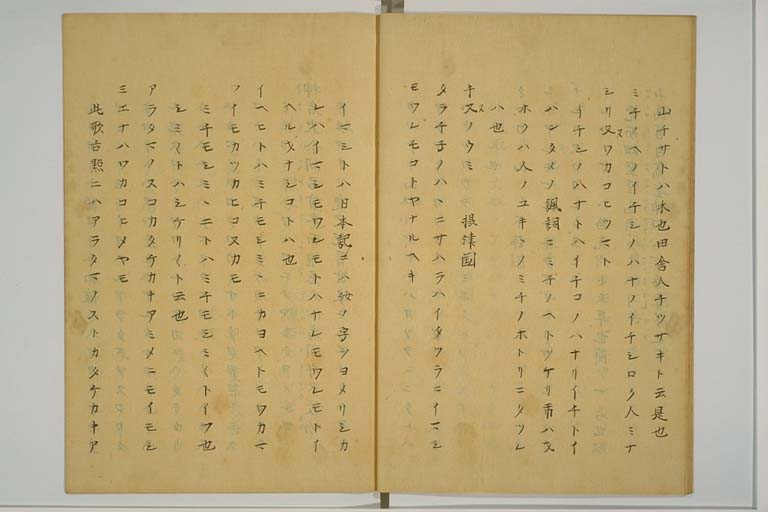 山チサトハ木也田舎人チツサキト云是也
ミチノヘノイチシノハナノイチシロク人ミナ
シリヌワカコヒツマト
イチシノハナトハイチコノハナリイチトイ
ハンタメノ諷詞ニミチノヘトツケリ
ホウハ人ノユキ ノミチノホトリニ
ハ也
チヌノウミ 摂津國
タラチ子ノハヽニサハラハイタツラニイマシ
モワレモコトヤナルヘキ
イマシトハ日本記ニハ汝ノ字ヲヨメリシカ
レハイマシモワレモトハナレモワレモトイ
ヘル ナシコトハ也
イヘヒトハミチモシミヽニカヨヘトモワカマ
ツイモカツカヒコヌカモ
ミチモシミヽニトハミチモシミ トイフ也
シミ トハシケリイト云也
アラタマノスコカタケカキアミメニモイモシ
ミエナハワカコヒメヤモ
此歌古點ニハアラタマノストカタケカキア